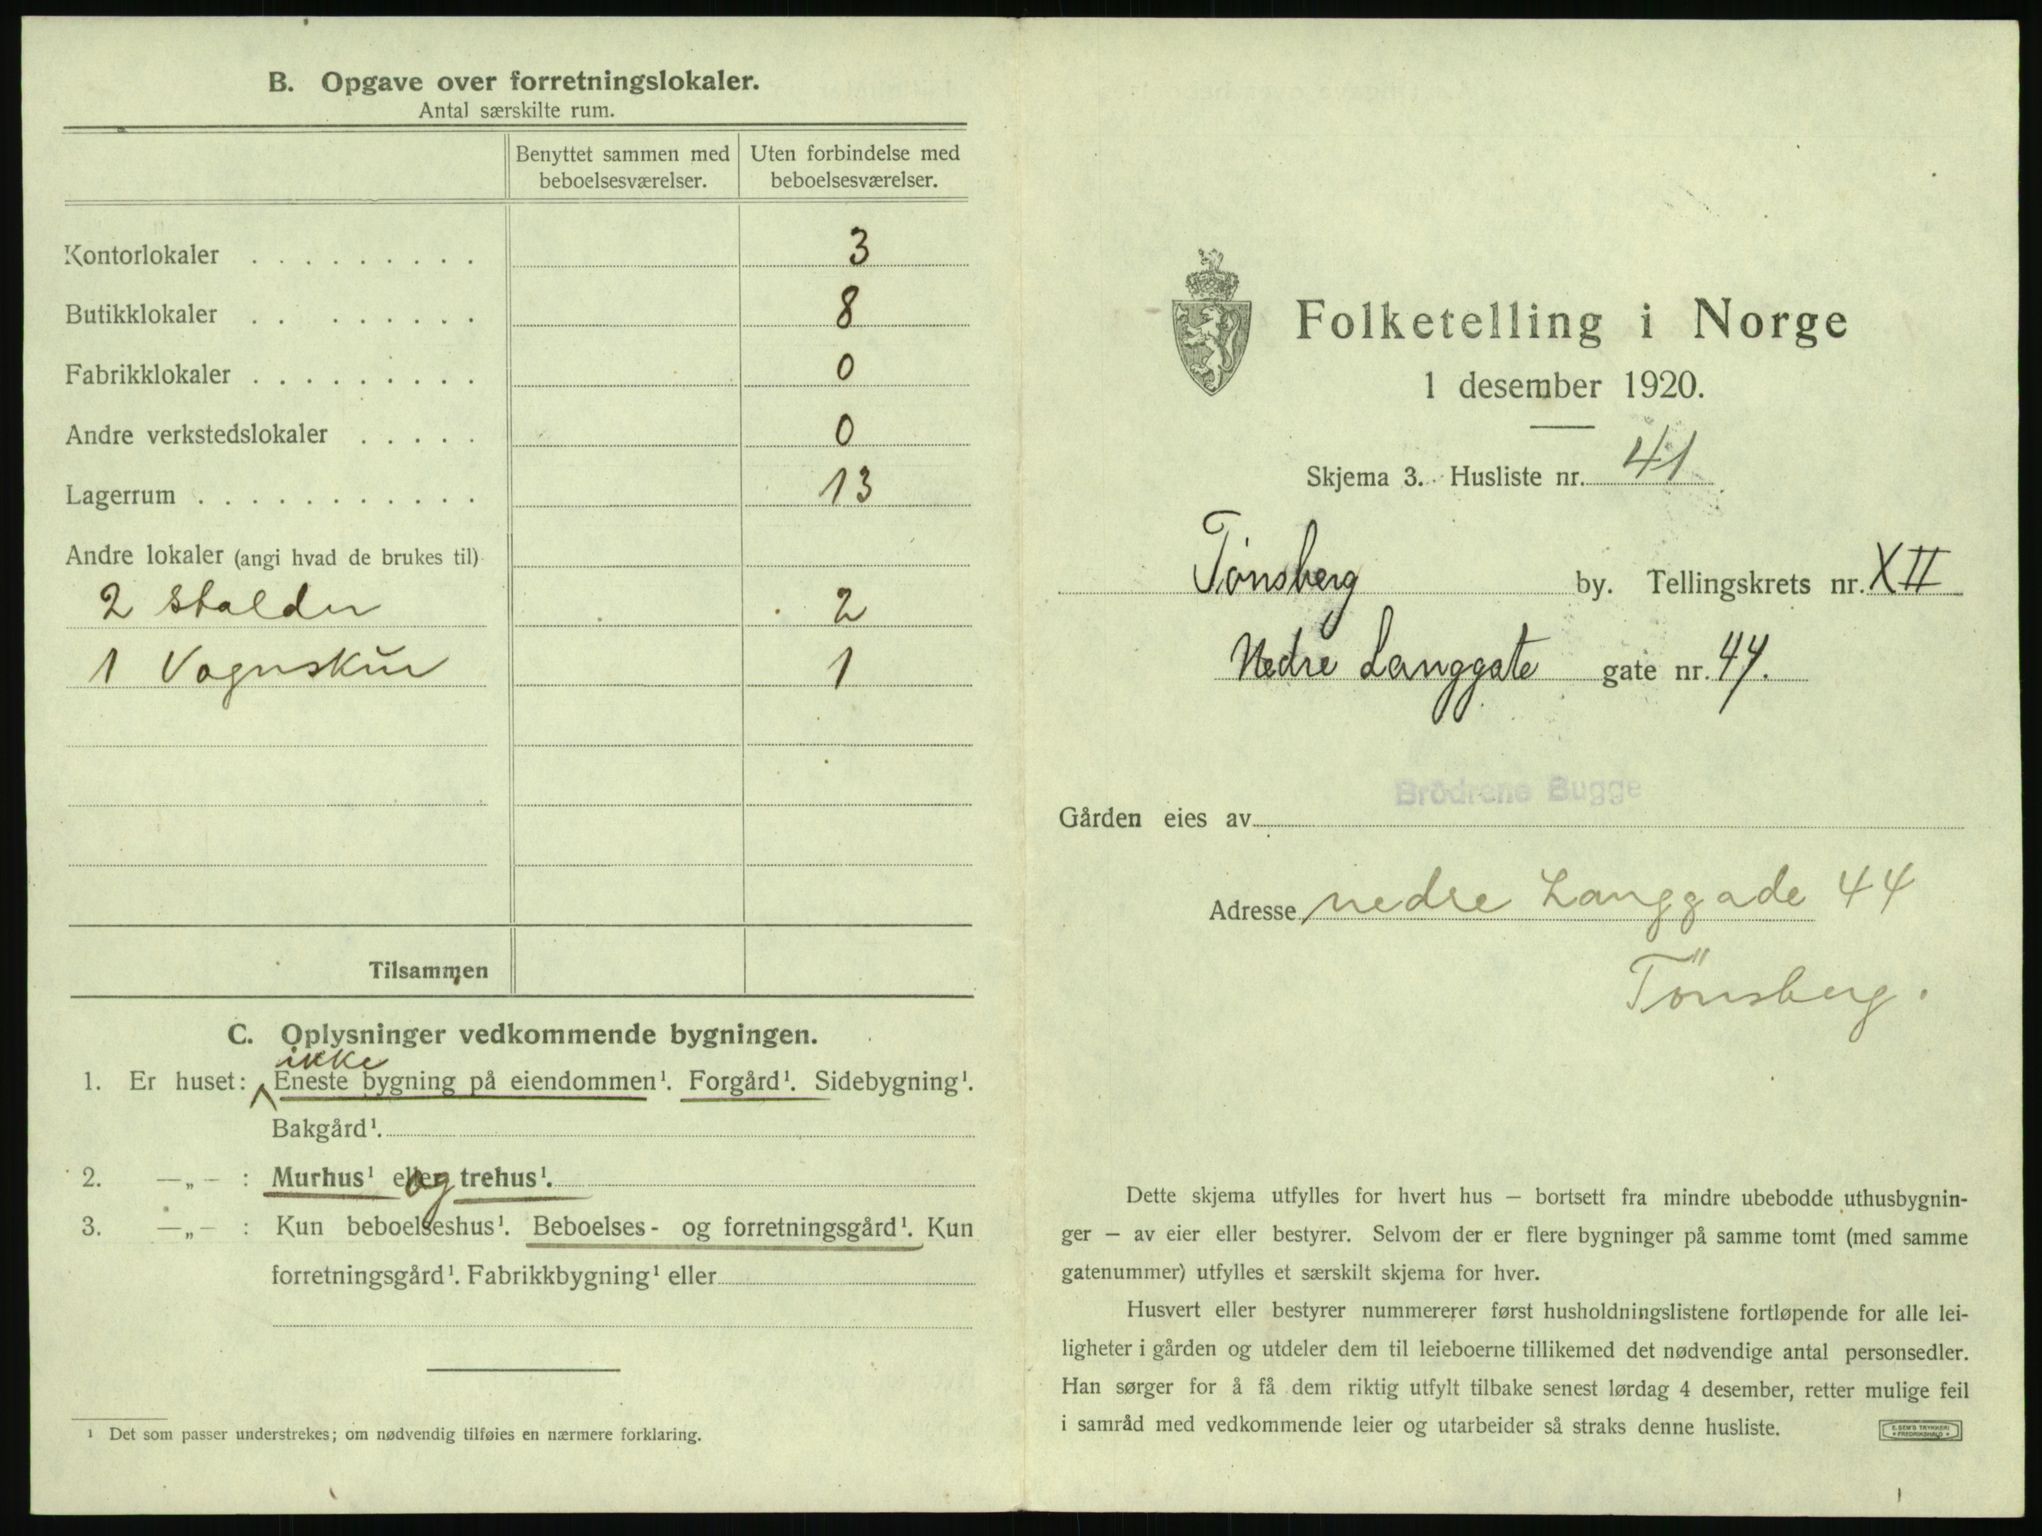 B. Opgave over forretningslokaler.
Antal særskilte rum.
Benyttet sammen med beboelsesværelser.
Uten forbindelse med beboelsesværelser.
Kontorlokaler . . . . . . . . . 3
Butikklokaler . . . . . . . . 8
Fabrikklokaler . . . . . . . . . 0
Andre verkstedslokaler . . . . . 0
Lagerrum . . . . . . . . . . . 13
Andre lokaler (angi hvad de brukes til)
2 Stalder 2
1 Vognskur 1
Tilsammen
C. Oplysninger vedkommende bygningen.
ikke
1. Er huset: Eneste bygning på eiendommen¹. Forgård¹. Sidebygning¹.
Bakgård¹.
2. —„— : Murhus¹ og trehus¹.
3. —„— : Kun beboelseshus¹. Beboelses- og forretningsgård¹. Kun
forretningsgård¹. Fabrikkbygning¹ eller
¹ Det som passer understrekes; om nødvendig tilføies en nærmere forklaring.
Folketelling i Norge
1 desember 1920.
Skjema 3. Husliste nr. 41
Tønsberg by. Tellingskrets nr. XII
Nedre Langgate gate nr. 44.
Brödrene Bugge
Gården eies av
Adresse nedre Langgade 44
Tönsberg.
Dette skjema utfylles for hvert hus — bortsett fra mindre ubebodde uthusbygnin-
ger — av eier eller bestyrer. Selvom der er flere bygninger på samme tomt (med samme
gatenummer) utfylles et særskilt skjema for hver.
Husvert eller bestyrer nummererer først husholdningslistene fortløpende for alle lei-
ligheter i gården og utdeler dem til leieboerne tillikemed det nødvendige antal personsedler.
Han sørger for å få dem riktig utfylt tilbake senest lørdag 4 desember, retter mulige feil
i samråd med vedkommende leier og utarbeider så straks denne husliste.
E. SEM'S TRYKKERI
FREDRIKSHALD